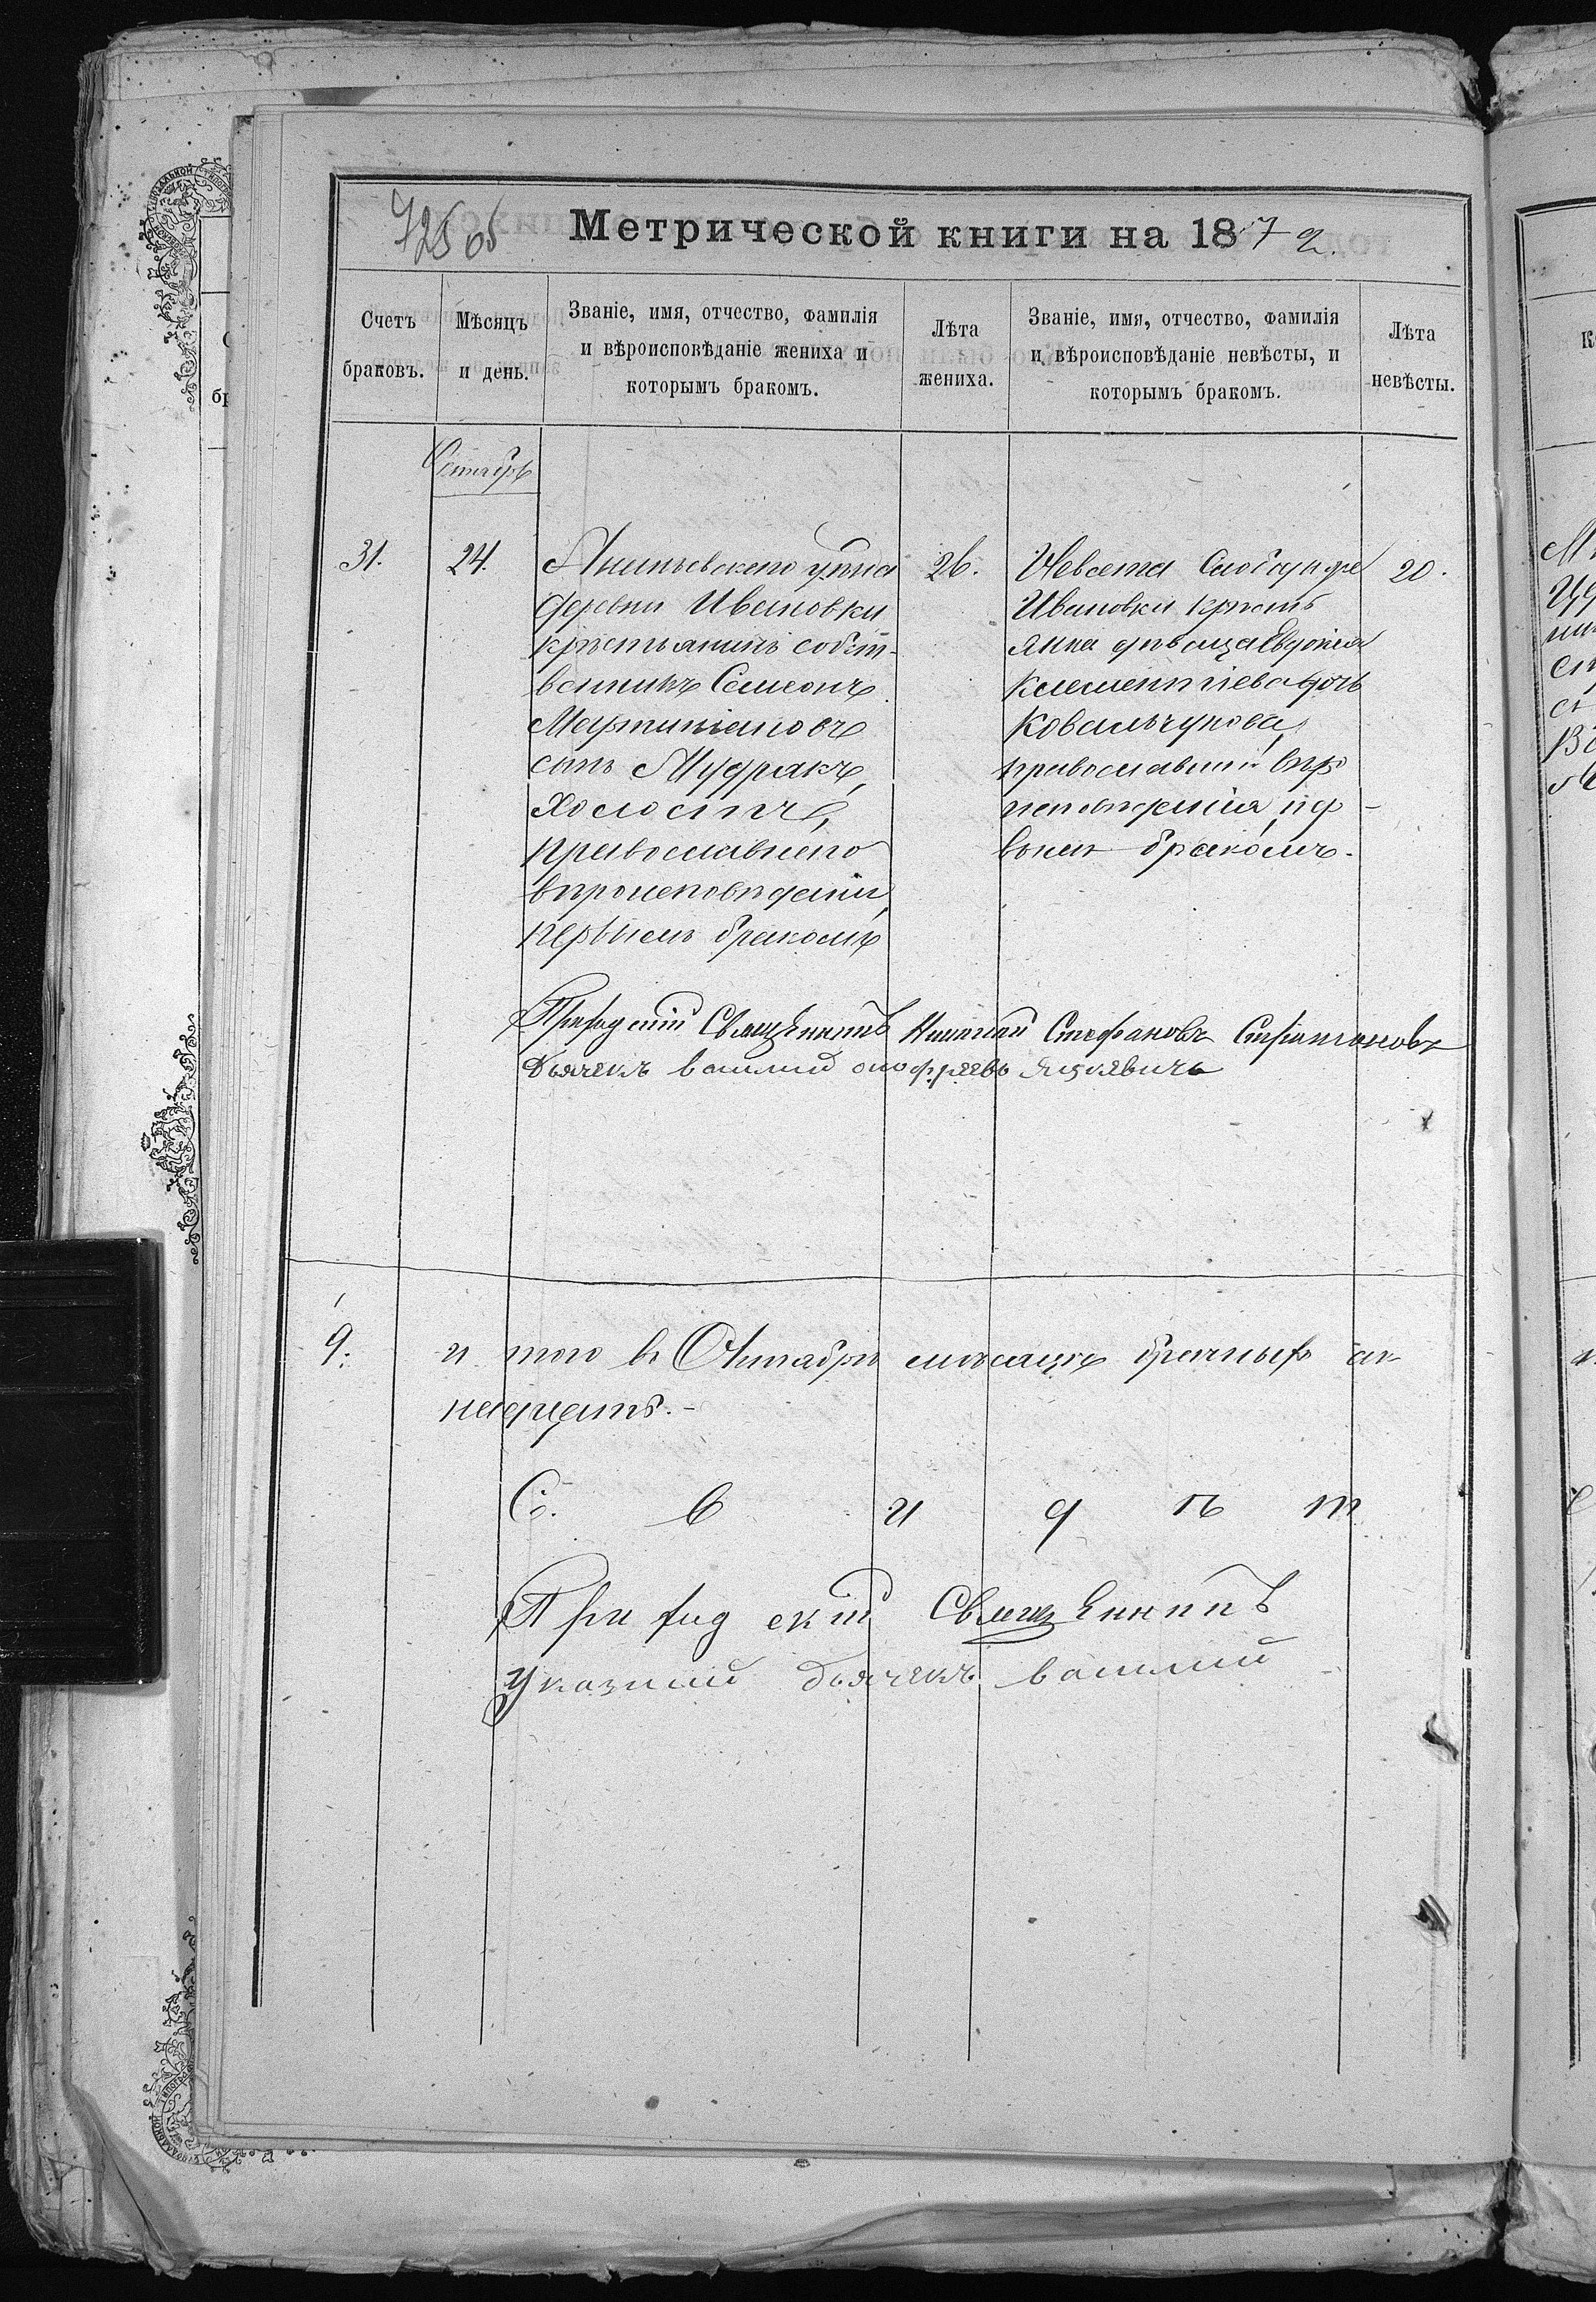 72505
Метрической книги на 1872.
Счетъ браковъ.
Мѣсяцъ и день.
Званіе, имя, отчество, фамилія и вѣроисповѣданіе жениха и которымъ бракомъ.
Лѣта жениха.
Званіе, имя, отчество, фамилія и вѣроисповѣданіе невѣсты, и которымъ бракомъ.
Лѣта невѣсты.
31.
24.
Ананьевского уѣзда
деревни Ивановки
крѣстьянинъ собст-
венникъ Семеонъ
Мартиніановъ
сынъ Мудракъ,
холостъ,
православнаго
вѣроисповѣданія,
первымъ бракомъ
26.
Невѣста
Ивановки крѣсть
янка дѣвица Евдокія
Клементіева дочь
Ковальчукова,
православной вѣро
исповѣданія, пер
вымъ бракомъ.
20.
Приходскій Священникъ Николай Стефановъ
Дьячекъ василий онофреевъ Яцкевичъ
9.
и того въ Октябрѣ мѣсяцѣ брачныхъ
С в и д ѣ т
Приходскій Священникъ
указный дьячекъ василий